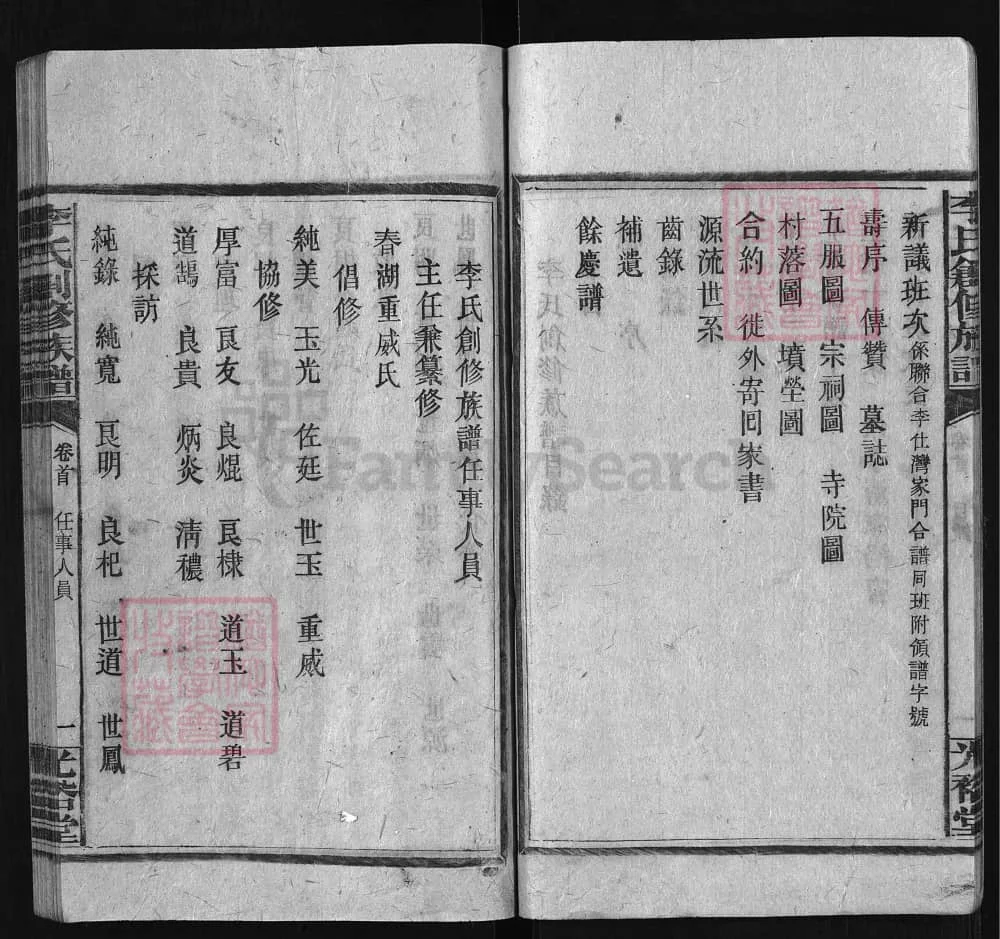 新議班次係聯合李仕灣家門合譜同班附領譜字號
壽序 傳贊 墓誌
五服圖 宗祠圖 寺院圖
村落圖 墳塋圖
合約 徙外寄囘家書
源流世系
齒錄
補遺
餘慶譜
李氏創修族譜
光裕堂
李氏創修族譜任事人員
主任兼纂修
春湖重威氏
倡修
純美 玉光 佐廷 世玉 重威
協修
厚富 良友 良焜 良棣 道玉 道碧
道鵠 良貴 炳炎 淸穠
採訪
純錄 純寬 良明 良杞 世道 世鳳
李氏創修族譜 卷首 任事人員 一 光裕堂
FamilySearch